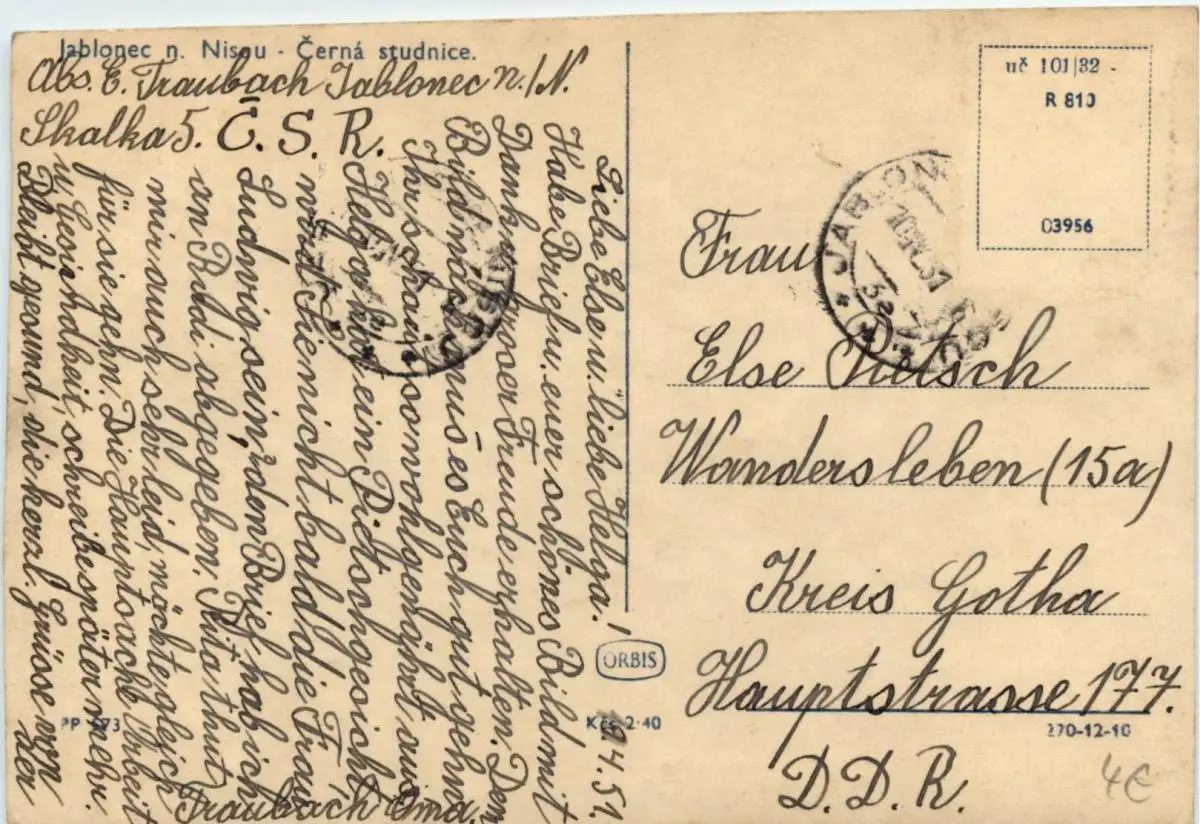 Jablonec n. Nisou - Černá studnice.
Abs. E. Traubach Jablonec n./N.
Skalka 5. Č. S. R.
Liebe Else u. liebe Helga!
Habe Brief u. euer schönes Bild mit
Dank u. grosser Freude erhalten. Dem
Bild nach muß es Euch gut gehn
Ihr schaut so wohlgenährt aus
Helga hat ein Pietschgesicht,
wird Sie nicht bald die Frau
Ludwig sein? den Brief hab ich
an Rudi abgegeben, Rita thut
mir auch sehr leid, möchte gleich
für sie gehn. Die Hauptsache Arbeit
u. Gesundheit, schreibe später mehr.
Bleibt gesund, die herzl. Grüsse von
der
Traubach Oma.
10.4.51.
PP 573
Kčs 2·40
ORBIS
uč 101/32 -
R 810
03956
JABLONEC
10.IV.51
Frau
Else
Wandersleben (15a)
Kreis Gotha
Hauptstrasse 177.
270-12-10
D. D. R.
4€